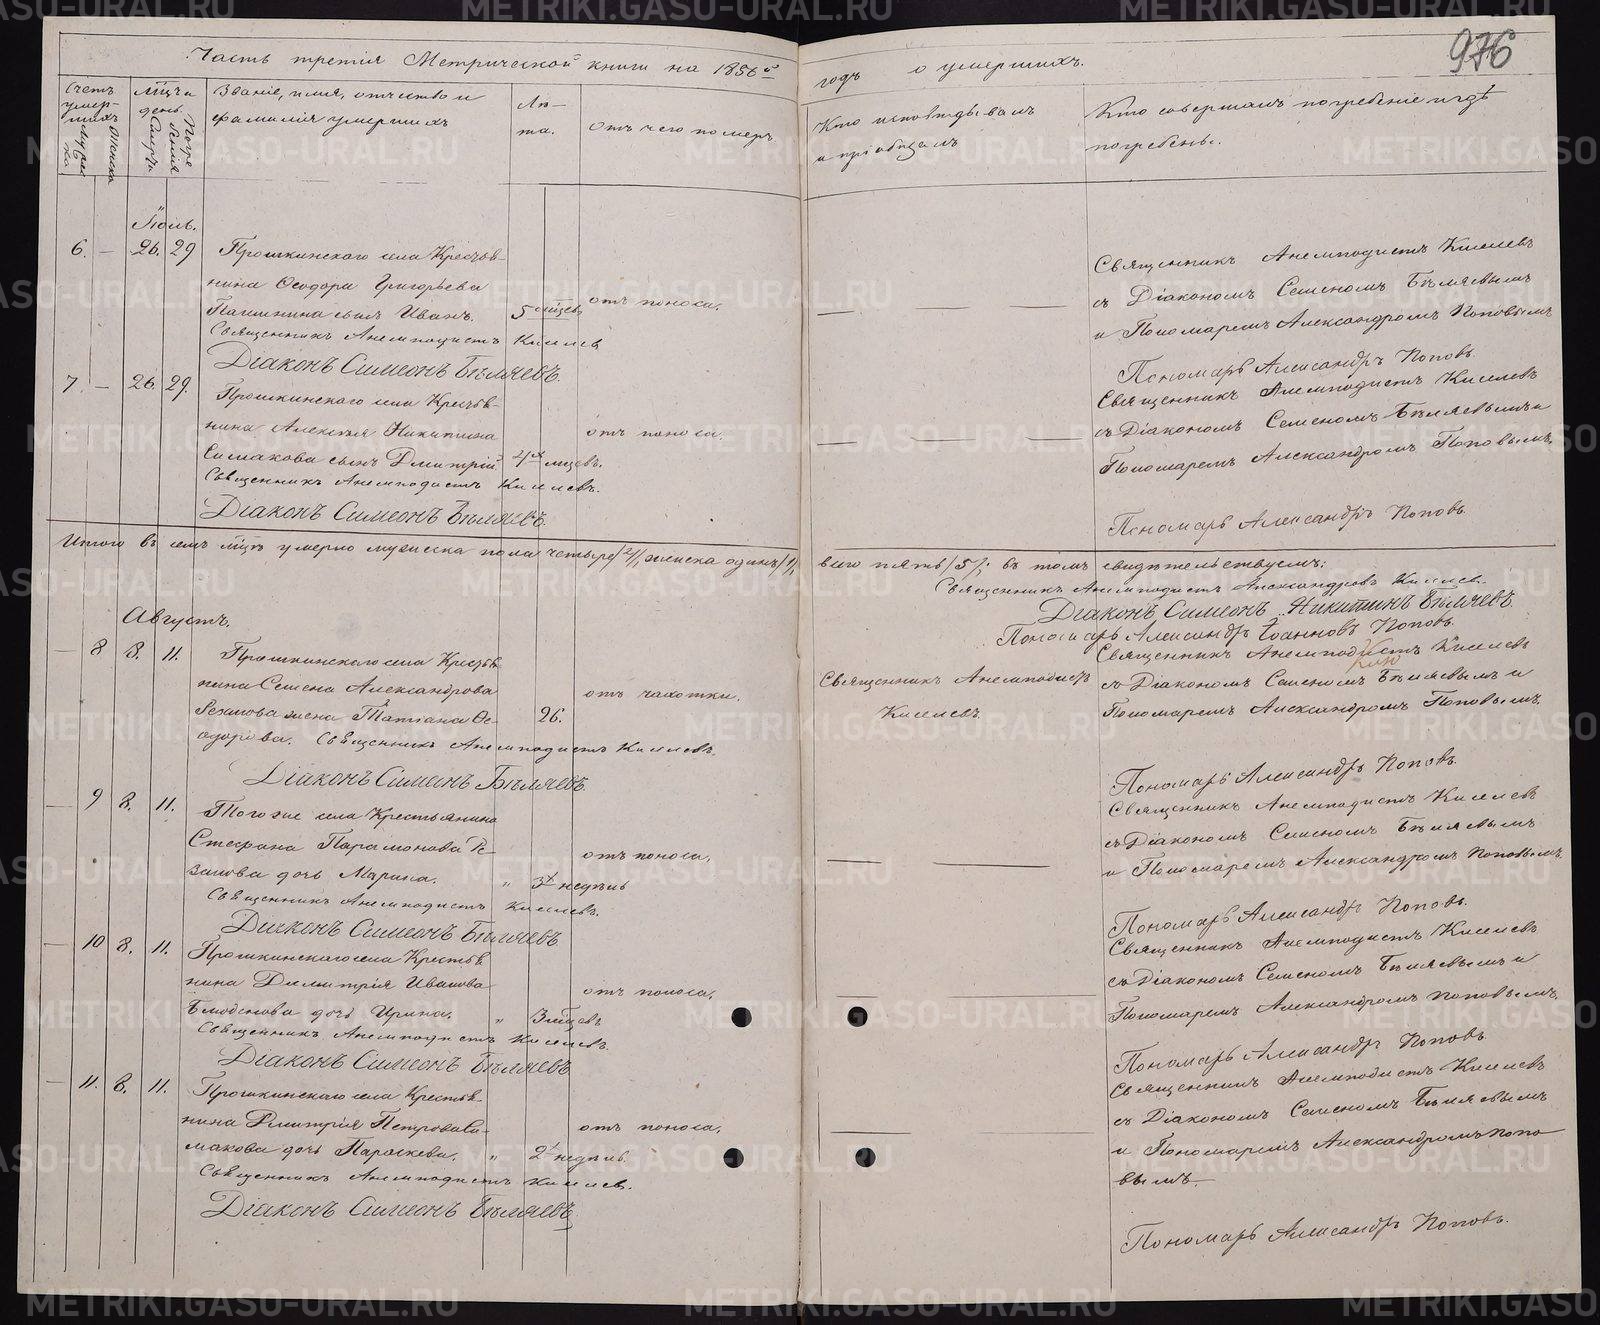 Часть третія Метрической книги на 1856й годъ о умершихъ.
976
Счетъ умершихъ
Мужска
Женска
Мѣсяцъ и день
Смерти
Погребенія
Званіе, имя, отчество и фамилія умершихъ
Лѣта.
Отъ чего померъ
Кто исповѣдывалъ и пріобщалъ
Кто совершалъ погребеніе и гдѣ погребены.
Іюль.
6. — 26. 29 Прошкинскаго села Крестья-
нина Ѳеодора Григорьева
Пашнина сынъ Иванъ. 5 мѣсяц. отъ поноса.
Священникъ Анемподистъ Киселевъ
Діаконъ Симеонъ Бѣляевъ.
Священникъ Анемподистъ Киселевъ
съ Діакономъ Семеномъ Бѣляевымъ
и Пономаремъ Александромъ Поповымъ
Пономарь Александръ Поповъ.
7. — 26. 29. Прошкинскаго села Крестья-
нина Алексѣя Никитина
Симакова сынъ Дмитрій 4х мѣсяцевъ. отъ поноса.
Священникъ Анемподистъ Киселевъ.
Діаконъ Симеонъ Бѣляевъ.
Священникъ Анемподистъ Киселевъ
съ Діакономъ Семеномъ Бѣляевымъ и
Пономаремъ Александромъ Поповымъ.
Пономарь Александръ Поповъ.
Итого въ семъ мѣсяцѣ умерло мужеска пола четыре женска одинъ /1/, всего пять /5/; въ томъ свидѣтельствуемъ:
Священникъ Анемподистъ Александровъ Киселевъ.
Діаконъ Симеонъ Никитинъ Бѣляевъ.
Пономарь Александръ Іоанновъ Поповъ.
Августъ.
— 8 8. 11. Прошкинскаго села Крестья-
нина Семена Александрова
Резанова жена Татіана Ѳе-
одорова. 26. отъ чахотки.
Священникъ Анемподистъ Киселевъ.
Діаконъ Симеонъ Бѣляевъ.
Священникъ Анемподистъ
Киселевъ.
Священникъ Анемподистъ Киселевъ
съ Діакономъ Семеномъ Бѣляевымъ и
Пономаремъ Александромъ Поповымъ.
Пономарь Александръ Поповъ.
— 9 8. 11. Того же села Крестьянина
Стефана Парамонова Ре-
занова дочь Марина. " 3х недѣль отъ поноса.
Священникъ Анемподистъ Киселевъ.
Діаконъ Симеонъ Бѣляевъ
Священникъ Анемподистъ Киселевъ
съ Діакономъ Семеномъ Бѣляевымъ
и Пономаремъ Александромъ Поповымъ.
Пономарь Александръ Поповъ.
— 10 8. 11. Прошкинскаго села Крестья-
нина Димитрія Иванова
дочь Ирина. " 3 мѣсяцевъ отъ поноса.
Священникъ Анемподистъ Киселевъ.
Діаконъ Симеонъ Бѣляевъ
Священникъ Анемподистъ Киселевъ
съ Діакономъ Семеномъ Бѣляевымъ и
Пономаремъ Александромъ Поповымъ.
Пономарь Александръ Поповъ.
— 11. 8. 11. Прошкинскаго села Крестья-
нина Дмитрія Петрова Си-
макова дочь Параскева. " 2х недѣль. отъ поноса.
Священникъ Анемподистъ Киселевъ.
Діаконъ Симеонъ Бѣляевъ
Священникъ Анемподистъ Киселевъ
съ Діакономъ Семеномъ Бѣляевымъ
и Пономаремъ Александромъ Попо-
вымъ.
Пономарь Александръ Поповъ.
METRIKI.GASO-URAL.RU